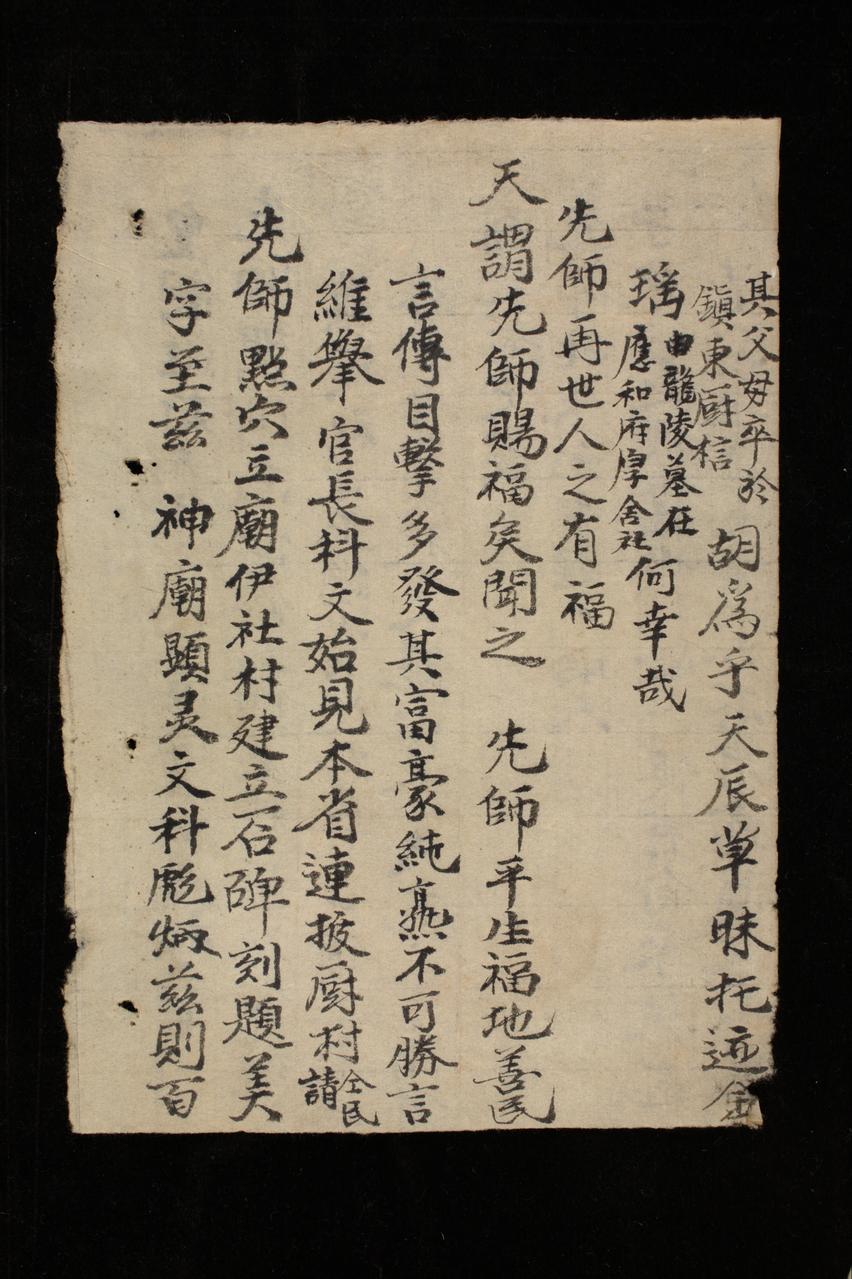 其父毋卒於
鎮東厨信
胡為乎天辰草昧托迹金
瑶
由龍陵墓在
應和府厚舍社
何幸哉
先師再世人之有福
天謂先師賜福矣聞之 先師平生福地善民
言傳目擊多發其富豪純熹不可勝言
維舉官長科文始見本省連披厨村仝民請
先師點穴立廟伊社村建立石碑刻題美
字至茲 神廟顕灵文科彪炳茲則百